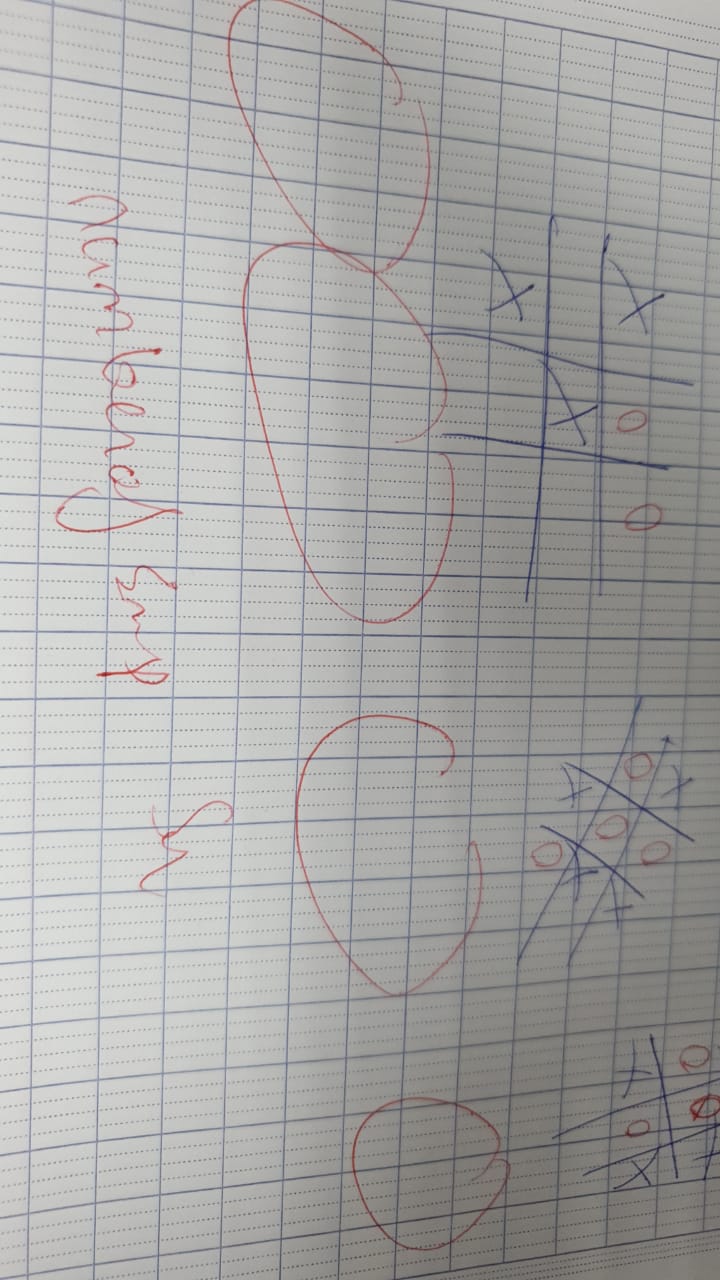 X O O
X
X
X O
O O X
X X
O
O O
X O X
number of smp